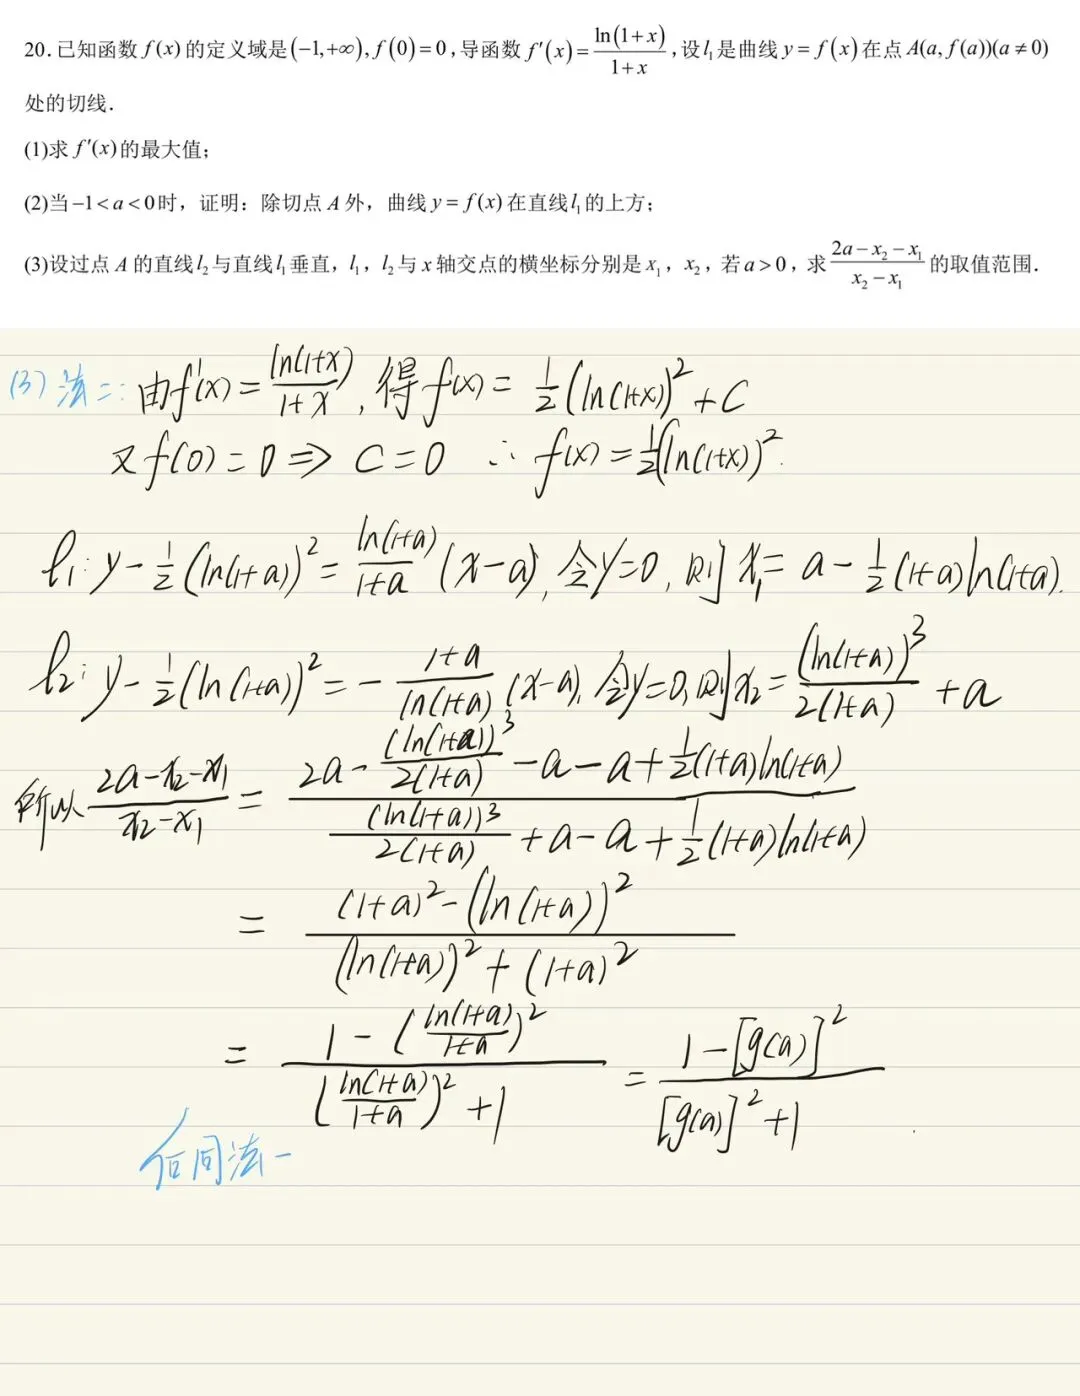 20.已知函数 f(x) 的定义域是(-1,+∞), f(0)=0,导函数 f′(x)=ln(1+x)/(1+x),设l₁是曲线 y=f(x)在点 A(a,f(a))(a≠0)
处的切线.
(1)求 f′(x)的最大值;
(2)当-1<a<0时,证明:除切点 A 外,曲线 y=f(x)在直线l₁的上方;
(3)设过点 A 的直线l₂与直线l₁垂直,l₁,l₂与 x 轴交点的横坐标分别是x₁,x₂,若a>0,求(2a-x₂-x₁)/(x₂-x₁)的取值范围.
(3) 法二: 由f′(x)=ln(1+x)/(1+x), 得 f(x)=1/2(ln(1+x))²+C
又f(0)=0⇒C=0 ∴f(x)=1/2(ln(1+x))².
l₁: y-1/2(ln(1+a))²=ln(1+a)/(1+a)(x-a), 令y=0, 则x₁=a-1/2(1+a)ln(1+a).
l₂: y-1/2(ln(1+a))²=-(1+a)/ln(1+a)(x-a), 令y=0,则x₂=(ln(1+a))³/2(1+a)+a
所以(2a-x₂-x₁)/(x₂-x₁)=(2a-(ln(1+a))³/2(1+a)-a-a+1/2(1+a)ln(1+a))/((ln(1+a))³/2(1+a)+a-a+1/2(1+a)ln(1+a))
=((1+a)²-(ln(1+a))²)/((ln(1+a))²+(1+a)²)
=(1-(ln(1+a)/(1+a))²)/((ln(1+a)/(1+a))²+1)=(1-[g(a)]²)/([g(a)]²+1)
后同法一